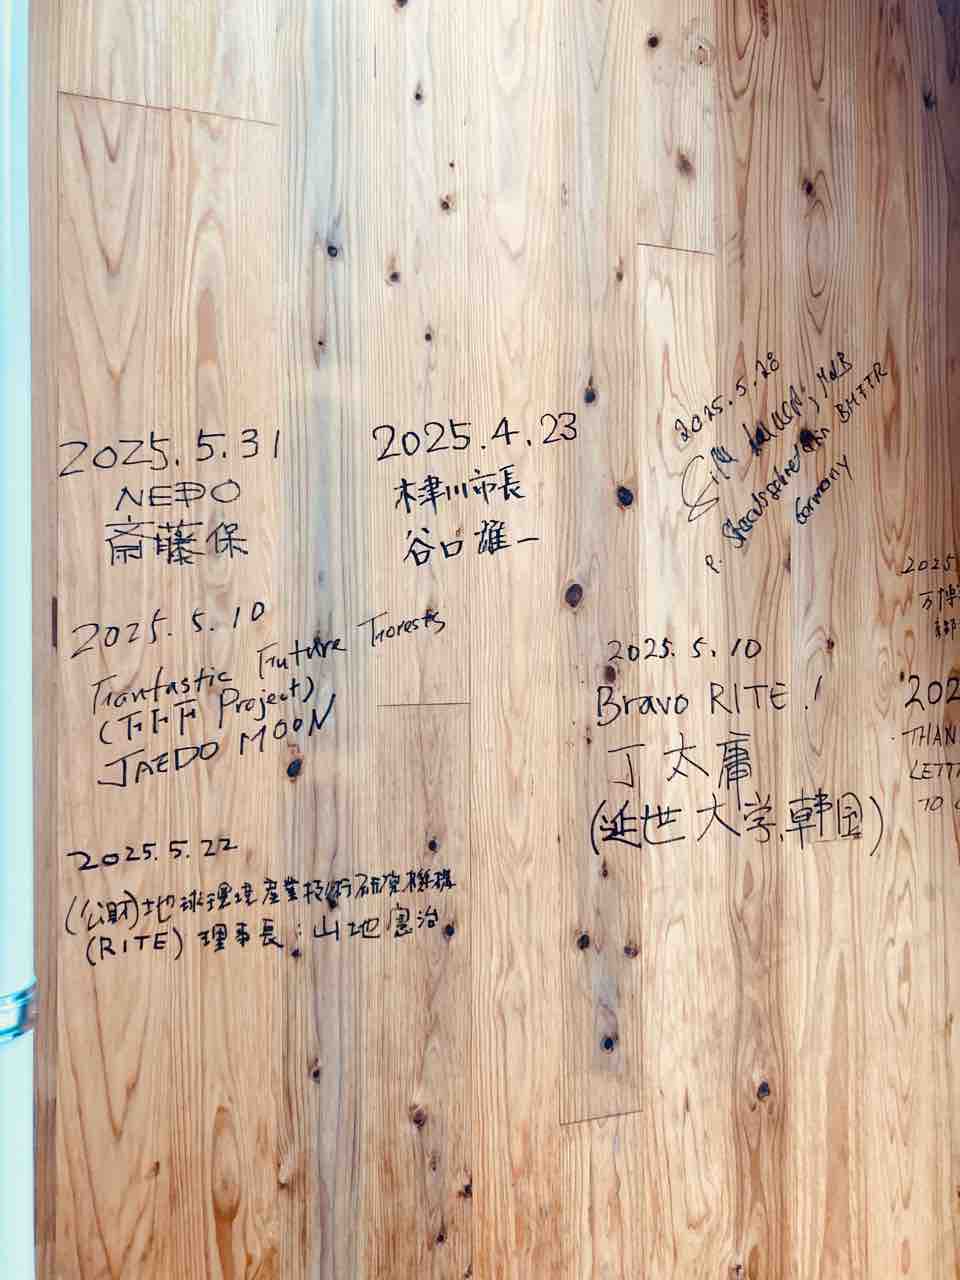 2025.5.31
NEDO
斎藤保
2025.5.10
Fantastic Future Forests
(FFF Project)
JAEDO MOON
2025.5.22
(公財)地球環境産業技術研究機構
(RITE) 理事長:山地憲治
2025.4.23
木津川市長
谷口雄一
2025.5.28
MdB
P. Staatssekretärin BMFTR
Germany
2025.5.10
Bravo RITE!
丁太庸
(延世大学,韓国)
2025
万博
202
THAN
LETT
TO